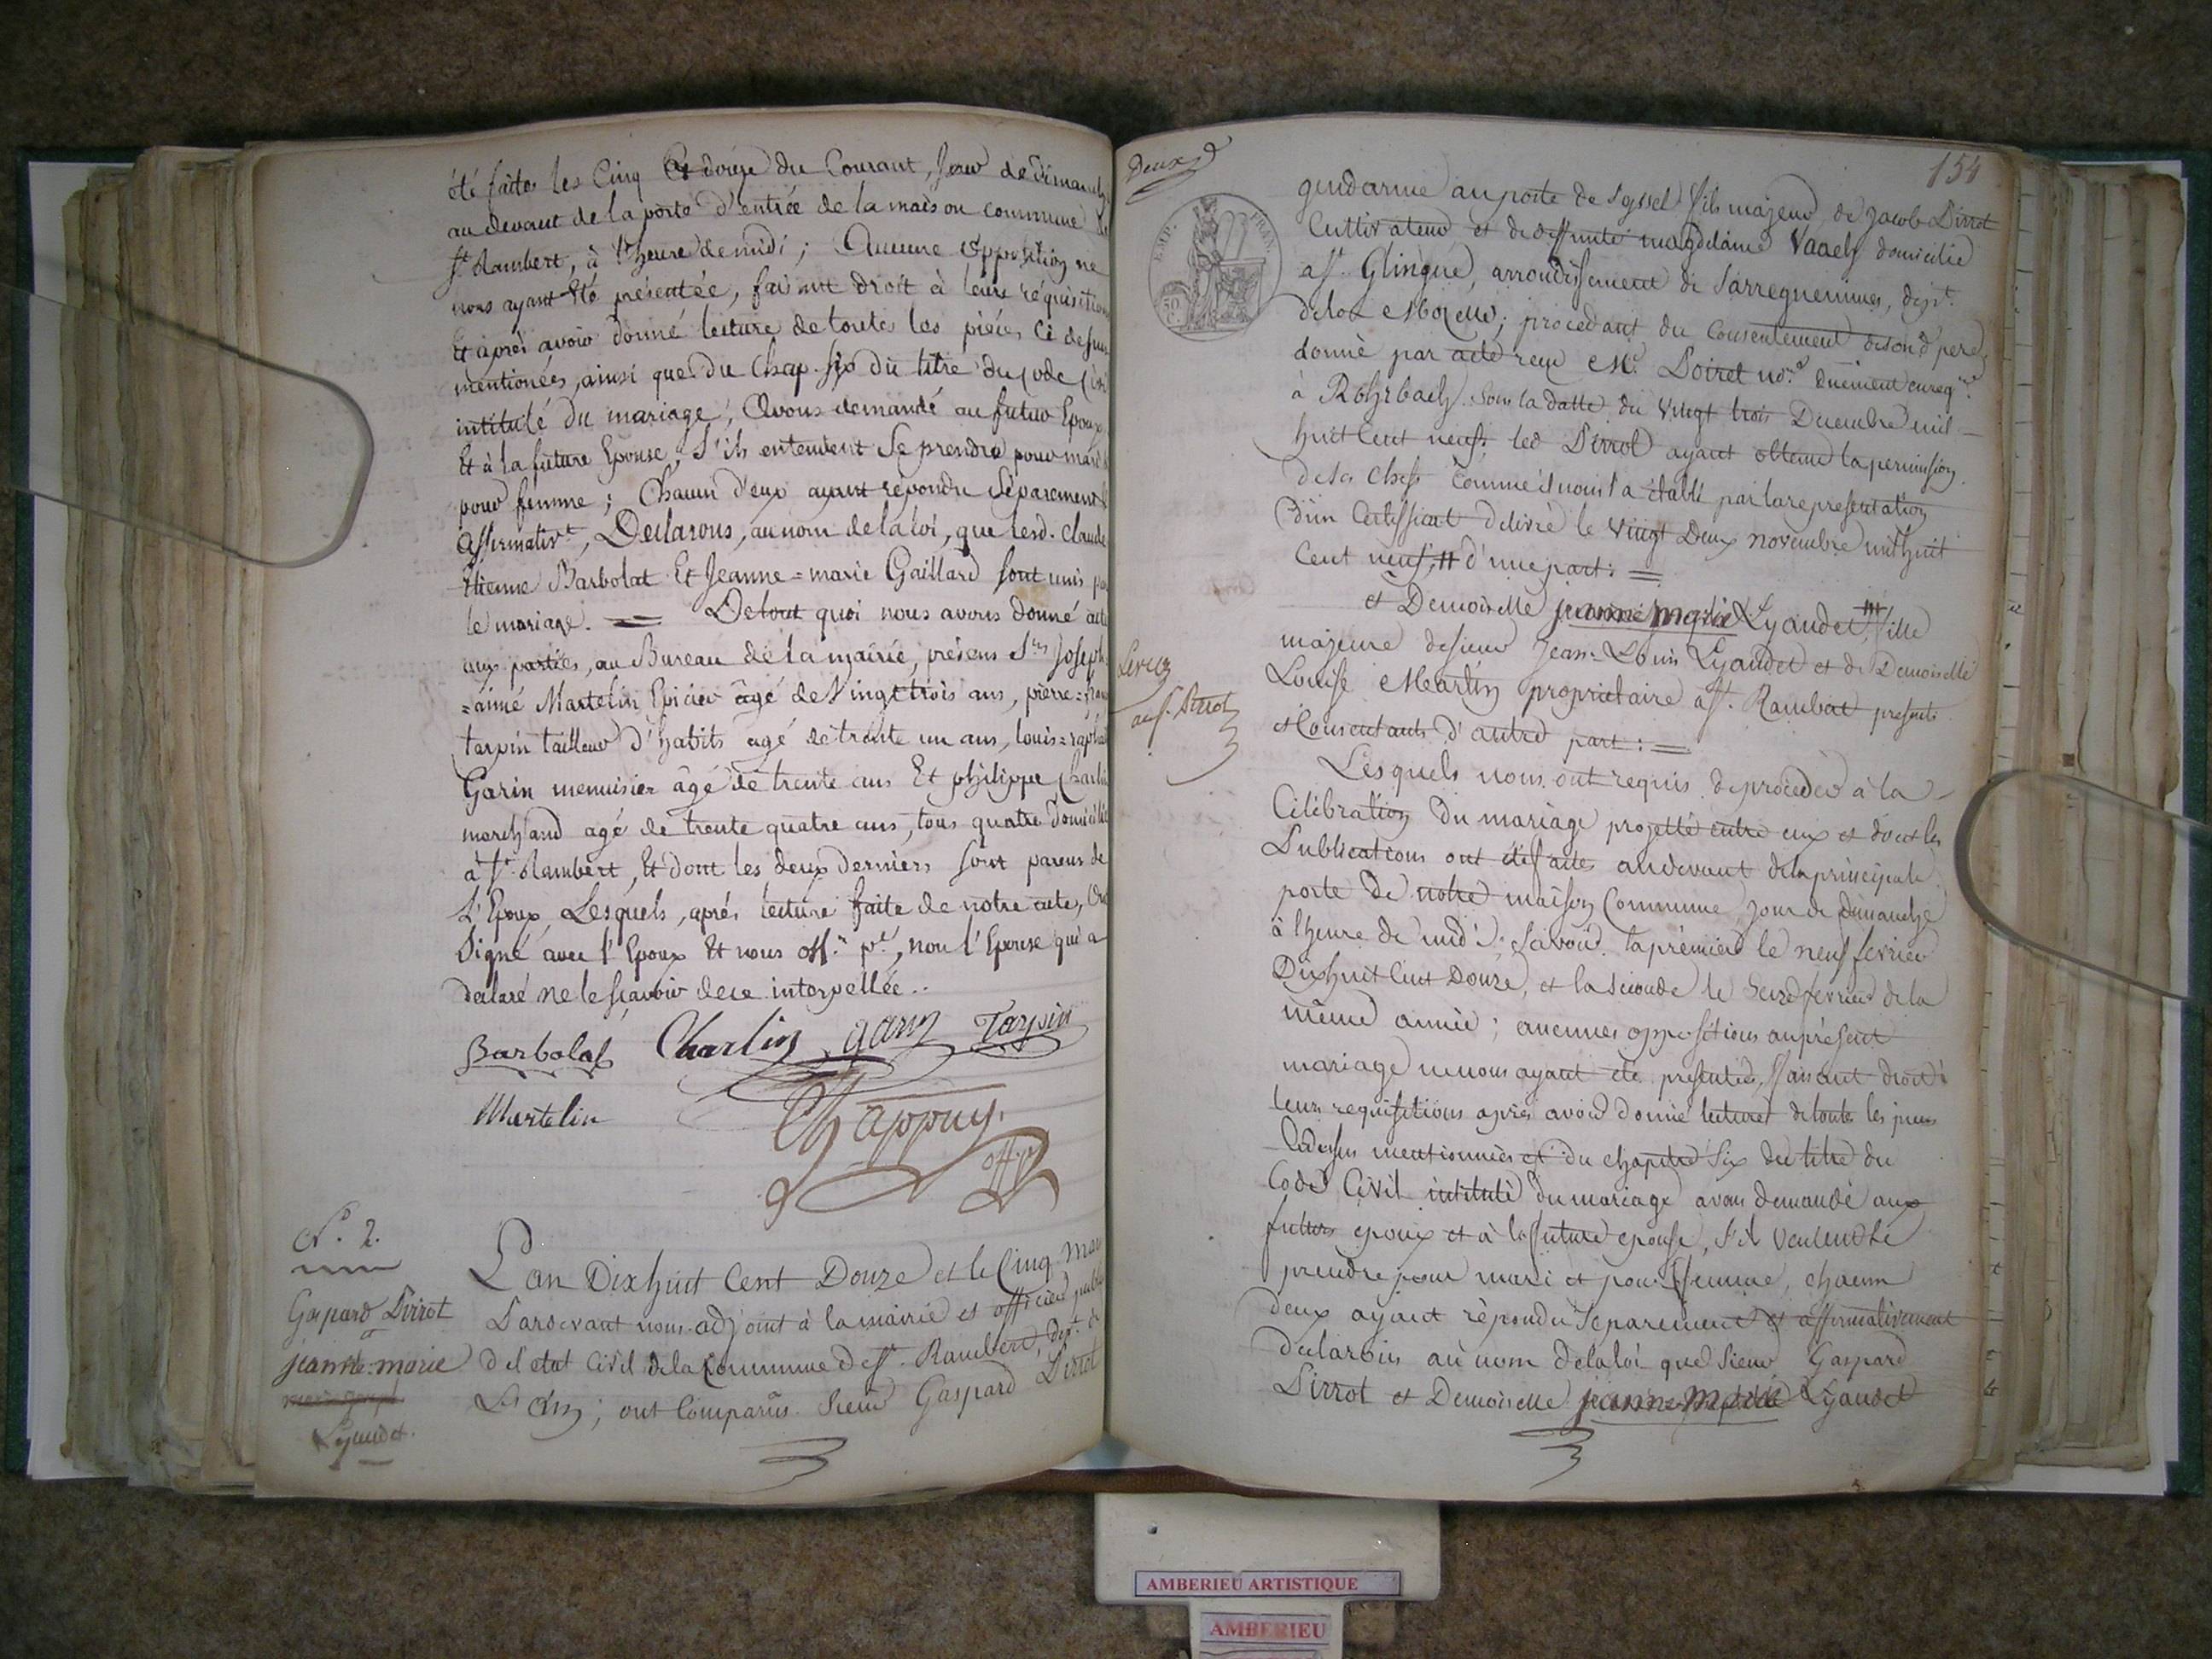 été faites les Cinq Et douze du Courant, Jour de dimanche
au devant de la porte d'entrée de la maison commune de
St. Rambert, à l'heure de midi ; Aucune Opposition ne
nous ayant été présentée, faisant droit à leurs réquisitions
Et après avoir donné lecture de toutes les pièces Ci dessus
mentionées, ainsi que du Chap. six du titre du Code Civil
intitulé du mariage, Avons demandé au futur Epoux
Et à la future Epouse, S'ils entendent Se prendre pour mari &
pour femme ; Chacun d'eux ayant répondu Séparement &
Affirmativt., Declarons, au nom de la loi, que lesd. Claude
Etienne Barbolat Et Jeanne=marie Gaillard sont unis par
le mariage. = De tout quoi nous avons donné acte
aux parties, au Bureau de la mairie, présens Srs. Joseph
=aimé Martelin Epicier âgé de Vingt trois ans, pierre=
tarpin tailleur d'habits âgé de trente un ans, louis=raphael
Garin menuisier âgé de trente ans Et philippe Charlin
marchand agé de trente quatre ans, tous quatre domiciliés
à St. Rambert, Et dont les deux derniers sont parens de
L'Epoux, Lesquels, après lecture faite de notre acte, Ont
Signé avec l'Epoux Et nous off. pc., non l'Epouse qui a
declaré ne le sçavoir de ce interpellée..
Barbolat Charlin garin Tarpin
Martelin Chappuy.
off. p.
No. 2.
Gaspard Dirrot
et
jeanne=marie
Lyaudet.
L'an Dix huit Cent Douze et le Cinq Mars
Pardevant nous adjoint à la mairie et officier public
de l'etat Civil de la Commune de St. Rambert, dept. de
L'ain ; ont Comparûs Sieur Gaspard Dirrot
Deux
154
EMP. FRAN.
50 C.
gendarme au poste de Seyssel fils majeur de Jacob Dirrot
Cultivateur et de deffunte magdelaine Vaaels domicilié
a St. Glinque, arrondissement de Sarreguemines, dept.
de la Mozelle ; procedant du Consentement de son d. pere,
donné par acte reçu Me. Loiret nore. duement enregré.
à Rohrbach. Sous la datte du vingt trois Decembre mil
huit Cent neuf, led Dirrot ayant obtenu la permission
de ses Chefs Comme il nous l'a établi par la representation
d'un Certifficat delivré le vingt Deux novembre mil huit
Cent neuf, d'une part : =
et Demoiselle jeanne marie Lyaudet fille
majeure de sieur Jean=Louis Lyaudet et de Demoiselle
Louise Martin proprietaire à St. Rambert présents
et Consentants d'autre part : =
Lesquels nous ont requis de procéder à la
Célébration du mariage projetté entre eux et dont les
Publications ont été faites au devant de la principale
porte de notre maison Commune Jour de dimanche
à l'heure de midi ; Savoir la premiere le neuf fevrier
Dix huit Cent Douze, et la seconde le Seize fevrier de la
même année ; aucunes oppositions au présent
mariage ne nous ayant été presentées, faisant droit à
leurs requisitions après avoir donné lecture de toutes les pieces
Cidessus mentionnées et du chapitre Six du titre du
Code Civil intitulé du mariage avons demandé aux
futurs epoux et à la future epouse, s'il veulent se
prendre pour mari et pour femme, chacun
deux ayant répondu Separement et affirmativement
declarons au nom de la loi que Sieur Gaspard
Dirrot et Demoiselle jeanne=marie Lyaudet
AMBERIEU ARTISTIQUE
AMBERIEU